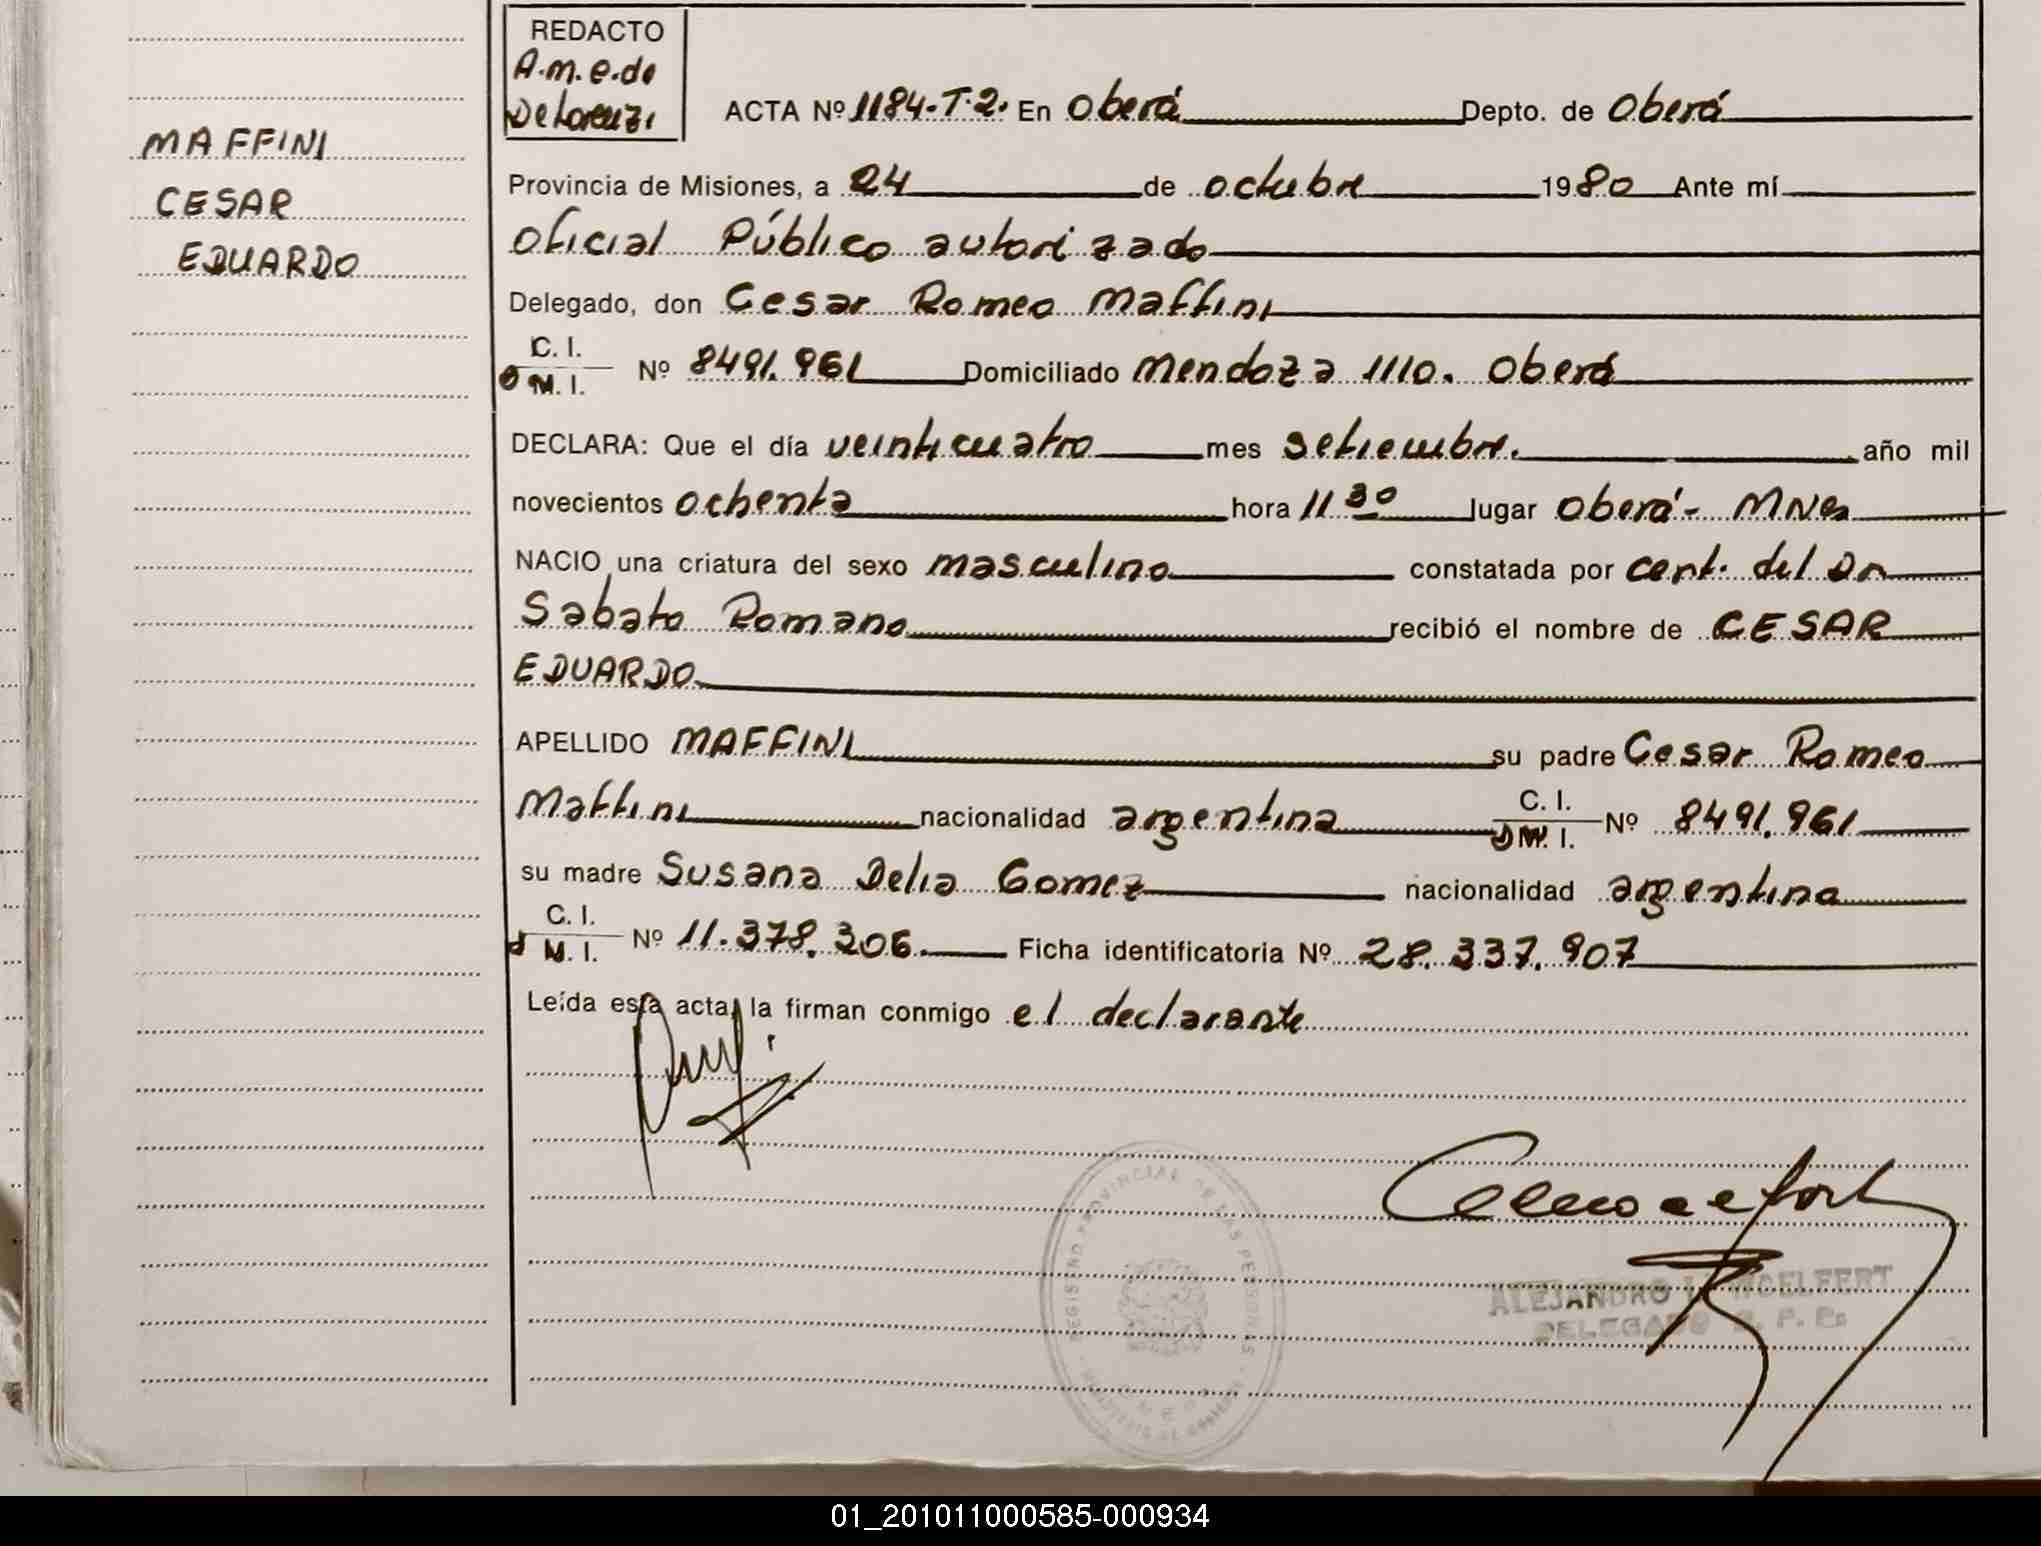 MAFFINI
CESAR
EDUARDO
REDACTO
A.M.E.de
De Lorenzi
ACTA Nº 1184-T.2. En Oberá Depto. de Oberá
Provincia de Misiones, a 24 de octubre 1980 Ante mí
Oficial Público autorizado
Delegado, don Cesar Romeo Maffini
C. I.
D M. I. Nº 8491.961 Domiciliado Mendoza 1110. Oberá
DECLARA: Que el día veinticuatro mes setiembre. año mil
novecientos ochenta hora 11 30 lugar Oberá - Mnes
NACIO una criatura del sexo masculino constatada por cert. del Dr
Sabato Romano recibió el nombre de CESAR
EDUARDO
APELLIDO MAFFINI su padre Cesar Romeo
Maffini nacionalidad argentina C. I. D M. I. Nº 8491.961
su madre Susana Delia Gomez nacionalidad argentina
C. I.
d M. I. Nº 11.378.306. Ficha identificatoria Nº 28.337.907
Leída esta acta, la firman conmigo el declarante
REGISTRO PROVINCIAL DE LAS PERSONAS
ALEJANDRO
DELEGADO R. P. P.
01_201011000585-000934